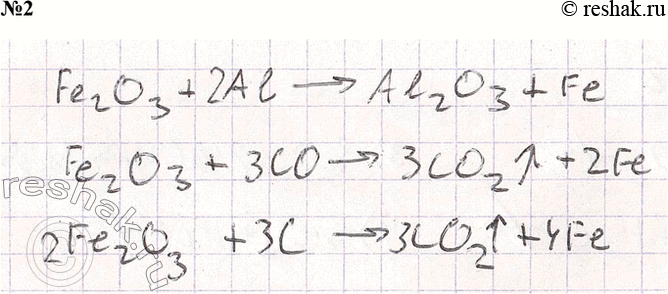 №2
© reshak.ru
Fe₂O₃ + 2Al → Al₂O₃ + Fe
Fe₂O₃ + 3CO → 3CO₂↑ + 2Fe
2Fe₂O₃ + 3C → 3CO₂↑ + 4Fe
reshak.ru